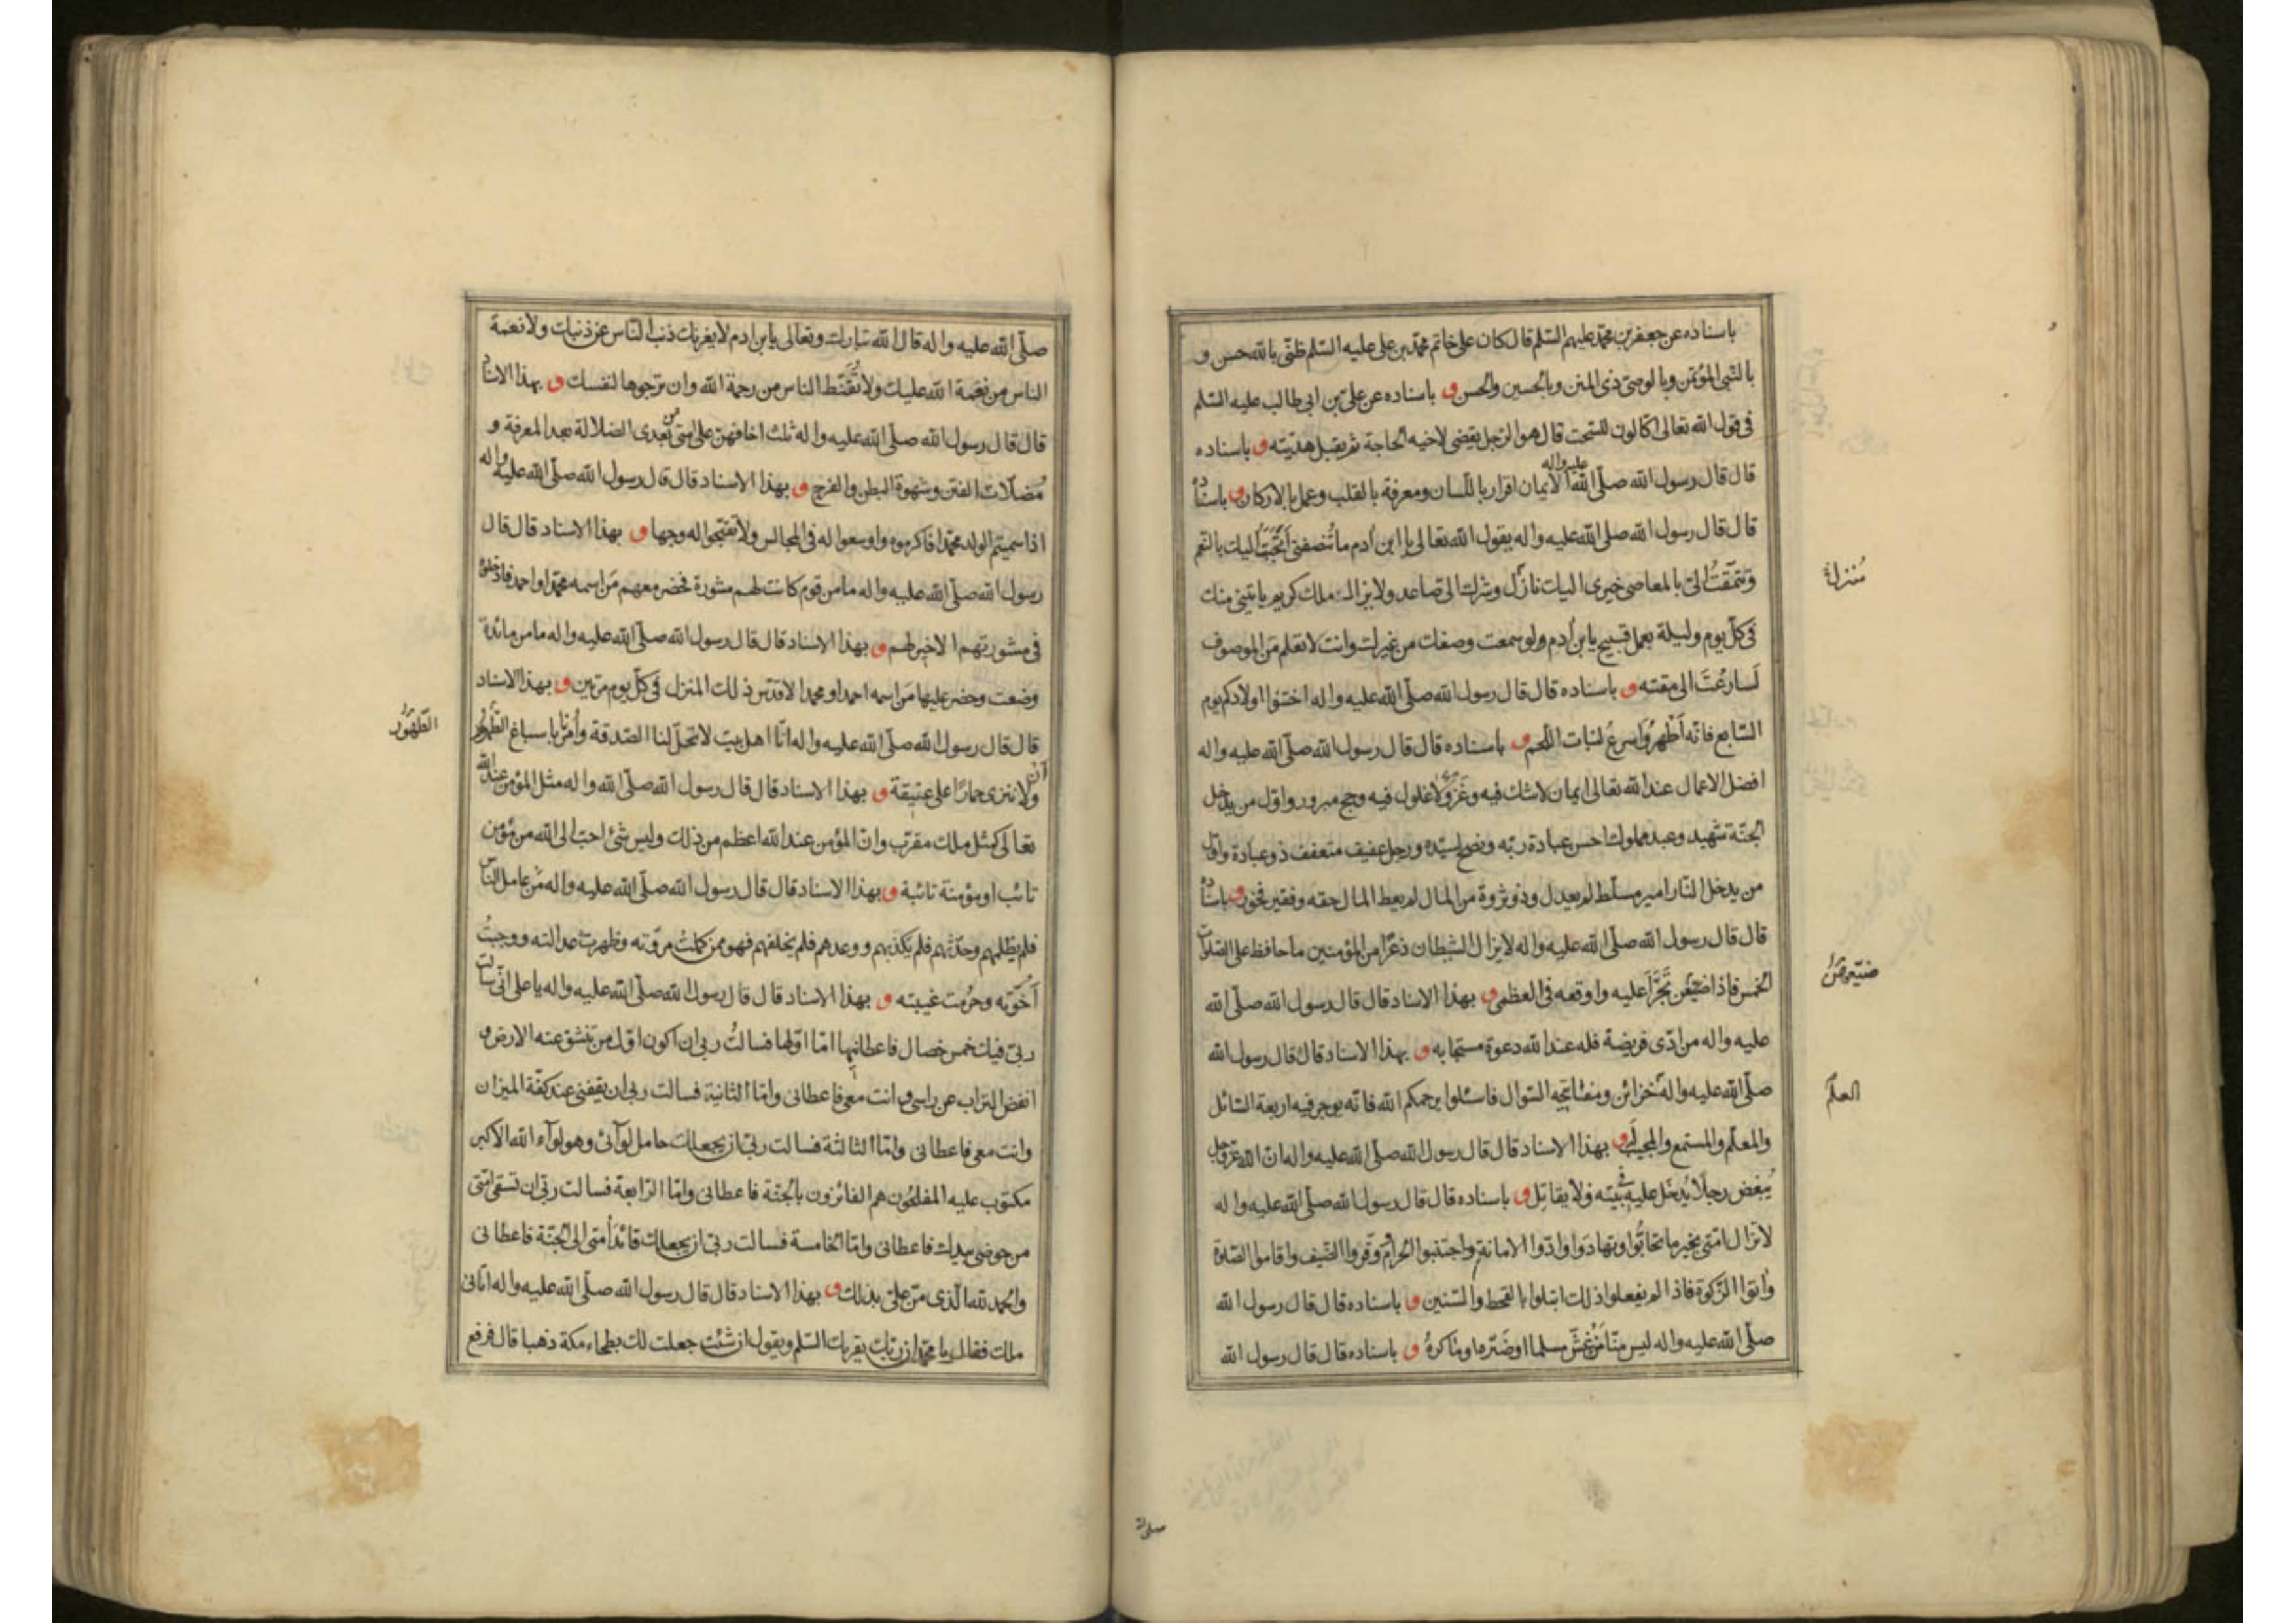 باسناده عن جعفر بن محمّد عليهم السّلم قال كان على خاتم محمّد بن على عليه السّلم ظنّى بالله حسن و
بالنّبى المؤتمن وبالوصىّ ذى المنن وبالحسين والحسن و باسناده عن علىّ بن ابى طالب عليه السّلم
فى قول الله تعالى اكّالون للسّحت قال هو الرّجل يقضى لاخيه الحاجة ثم يقبل هديّته و باسناده
قال قال رسول الله صلّى الله عليه واله الايمان اقرار باللّسان ومعرفة بالقلب وعمل بالاركان و باسناده
قال قال رسول الله صلّى الله عليه واله يقول الله تعالى يا ابن أدم ما تُنصفنى أتحَبَّبُ اليك بالنّعم
وتتمقّتُ الىّ بالمعاصى خيرى اليك نازل وشرّك الىّ صاعد ولايزال ملك كريم ياتينى منك
فى كلّ يوم وليلة بعمل قبيح يابن أدم ولو سمعت وصفك من غيرك وانت لا تعلم مَن الموصوف
لَسارعْتَ الى مقته و باسناده قال قال رسول الله صلّى الله عليه واله اختنوا اولادكم يوم
السّابع فانّه أطْهرُ وأسرعُ لنبات اللّحم و باسناده قال قال رسول الله صلّى الله عليه واله
افضل الاعمال عند الله تعالى ايمان لاشك فيه وغَزو لا غلول فيه وحج مبرور واوّل من يدخل
الجنّة شهيد وعبد مملوك احسن عبادة ربّه ونصح لسيّده ورجل عفيف متعفف ذو عبادة واوّل
من يدخل النّار امير مسلّط لم يعدل وذو ثروة من المال لم يعط المال حقه وفقير فخور و باسناده
قال قال رسول الله صلّى الله عليه واله لايزال الشيطان ذعرًا من المؤمنين ما حافظ على الصّلوات
الخمس فاذا ضيّعهن تَجَرَّأ عليه واوقعه فى العظمى و بهذا الاسناد قال قال رسول الله صلّى الله
عليه واله من ادّى فريضة فله عند الله دعوة مستجابه و بهذا الاسناد قال قال رسول الله
صلّى الله عليه واله خزائن ومفتاحه السّوال فاسئلوا يرحمكم الله فانّه يوجر فيه اربعة السّائل
والمعلّم والمستمع والمجيب و بهذا الاسناد قال قال رسول الله صلّى الله عليه واله ان الله عزّ وجل
يُبغض رجلًا يُدخَل عليه فى بيته ولا يقاتِل و باسناده قال قال رسول الله صلّى الله عليه واله
لاتزال امّتى بخير ما تحابُّوا وتهادَوا وادّوا الامانة واجتنبوا الحرام ووقّروا الضّيف واقاموا الصّلوة
واتوا الزّكوة فاذا لم يفعلوا ذلك ابتلوا بالقحط والسّنين و باسناده قال قال رسول الله
صلّى الله عليه واله ليس منّا مَن غشّ مسلما او ضَرّه او ماكرهُ و باسناده قال قال رسول الله
مُنزل
ضيّعهن
العلم
صلى الله
صلّى الله عليه واله قال الله تبارك وتعالى يابن ادم لا يغرنك ذنب النّاس عن ذنبك ولا نعمة
الناس من نعمة الله عليك ولا تُقَنّط الناس من رحمة الله وان ترجوها لنفسك و بهذا الاسناد
قال قال رسول الله صلّى الله عليه واله ثلث اخافهن على امتى من بعدى الضلالة بعد المعرفة و
مُضلّات الفتن وشهوة البطن والفرج و بهذا الاسناد قال قال رسول الله صلّى الله عليه واله
اذا سميتم الولد محمّدا فاكرموه واوسعوا له فى المجالس ولا تقبّحوا له وجها و بهذا الاسناد قال قال
رسول الله صلّى الله عليه واله ما من قوم كانت لهم مشورة فحضر معهم مَن اسمه محمّد او احمد فادخلوه
فى مشورتهم الا خير لهم و بهذا الاسناد قال قال رسول الله صلّى الله عليه واله ما من مائدة
وضعت وحضر عليها مَن اسمه احمد او محمد الا قدّس ذلك المنزل فى كلّ يوم مرّتين و بهذا الاسناد
قال قال رسول الله صلّى الله عليه واله انّا اهل بيت لا تحلّ لنا الصّدقة وأُمرنا باسباغ الطّهور
وان لا ننزى حمارًا على عتيقة و بهذا الاسناد قال قال رسول الله صلّى الله واله مثل المؤمن عند الله
تعالى كمثل ملك مقرّب وانّ المؤمن عند الله اعظم من ذلك وليس شئ احبّ الى الله من مؤمن
تائب او مؤمنة تائبة و بهذا الاسناد قال قال رسول الله صلّى الله عليه واله مَن عامل النّاس
فلم يظلمهم وحدّثهم فلم يكذبهم ووعدهم فلم يخلفهم فهو ممن كملت مروّته وظهرت عدالته ووجبتُ
أُخوّته وحرُمت غيبته و بهذا الاسناد قال قال رسول الله صلّى الله عليه واله يا على انّى سالت
ربّى فيك خمس خصال فاعطانيها امّا اوّلها فسالتُ ربى ان اكون اوّل من تنشق عنه الارض و
انفض التراب عن راسى وانت معى فاعطانى وامّا الثانية فسالت ربى ان يقفنى عند كفّة الميزان
وانت معى فاعطانى وامّا الثالثة فسالت ربّى ان يجعلك حامل لوآئى وهو لوآء الله الاكبر
مكتوب عليه المفلحون هم الفائزون بالجنّة فاعطانى وامّا الرّابعة فسالت ربّى ان تسقى امّتى
من حوضى بيدك فاعطانى وامّا الخامسة فسالت ربّى ان يجعلك قائدَ أمتى الى الجنّة فاعطانى
والحمد لله الّذى مَنّ علىّ بذلك و بهذا الاسناد قال قال رسول الله صلّى الله عليه واله اتانى
ملك فقال يا محمّد ان ربّك يقريك السّلم ويقول ان شئت جعلت لك بطحاء مكة ذهبا قال فرفع
الطّهوُر